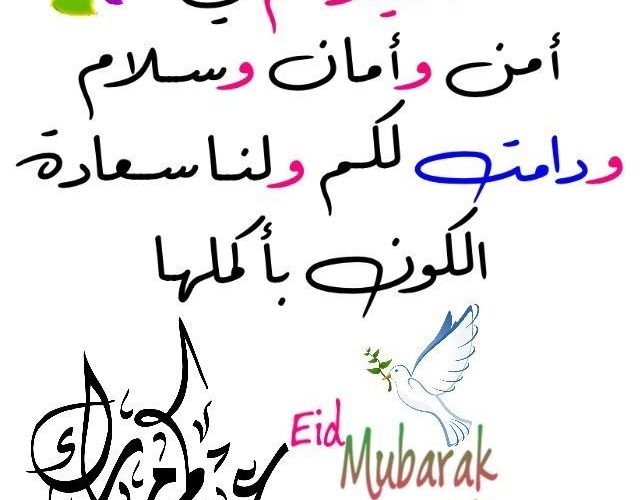 في
أمن وأمان وسلام
ودامت لكم ولنا سعادة
الكون بأكملها
Eid
Mubarak